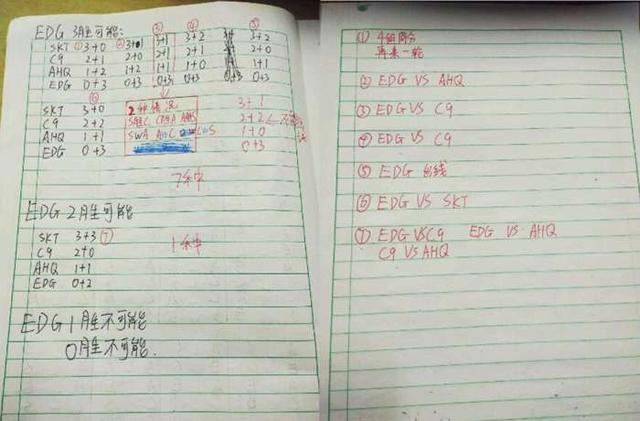 EDG 3胜可能:
③ ④ ⑤
SKT ① 3+0 ② 3+1 3+2 3+2
C9 2+1 2+0 2+1 2+1 2+0
AHQ 1+2 1+2 1+1 1+0 1+1
EDG 0+3 0+3 0+3 0+3 0+3
⑥
SKT 3+0 2种情况 3+1
C9 2+2 2+2
AHQ 1+1 1+0
EDG 0+3 0+3
7条中
EDG 2胜可能
SKT 3+3 ⑦
C9 2+0 1条中
AHQ 1+1
EDG 0+2
EDG 1胜不可能
0胜不可能.
① 4组同分
再来一轮
② EDG VS AHQ
③ EDG VS C9
④ EDG VS C9
⑤ EDG 出线
⑥ EDG VS SKT
⑦ EDG VS C9 EDG VS AHQ
C9 VS AHQ